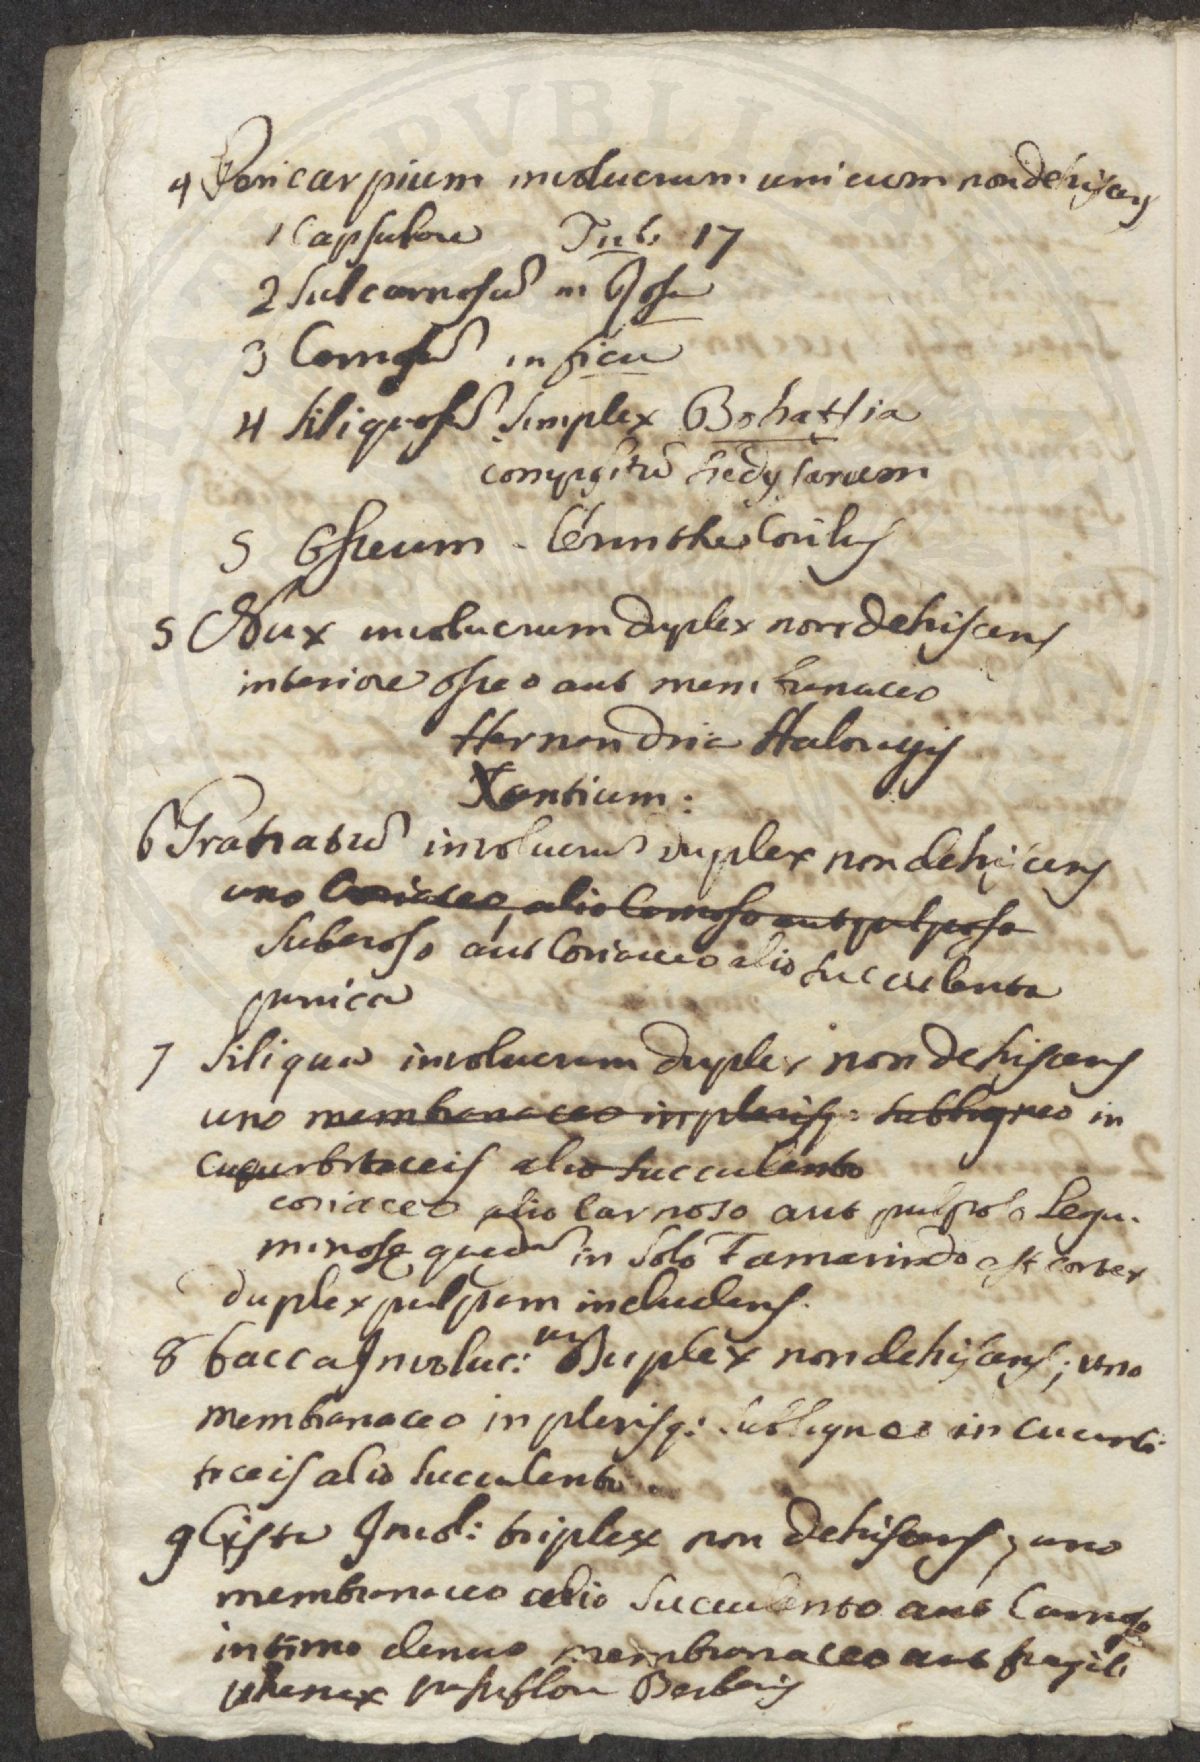 4 Pericarpium involucrum unicum non dehiscens
1 Capsulare Tub. 17
2 Subcarnosũ in Rosa
3 Carnosũ in ficu
4 Siliquosũ simplex Bohatsia
compositũ hedysarum
5 Osseum Corilus
5 Nux involucrum duplex non dehiscens
interiore osseo aut membranaceo
Hernandria Haloragis
Xantium:
6 involucrũ duplex non dehiscens
uno Coriaceo, alio Carnoso aut pulposo
suberoso aut Coriaceo alio succulento
punica
7 Siliqua involucrum duplex non dehiscens
uno membranaceo in plerisq: subligneo in
cucurbitaceis alio succulento
coriaceo alio carnoso aut pulposo legu-
minosę quędã in solo Tamarindo est cortex
duplex pulpam includens.
8 bacca Involuc:um Duplex non dehiscens; uno
membranaceo in plerisq: subligneo in cucurbi
taceis alio succulento.
9 Cista Invol: triplex non dehiscens; uno
membranaceo alio succulento aut Carnoso
intimo denuo membranaceo aut fragili
passiflora Berberis